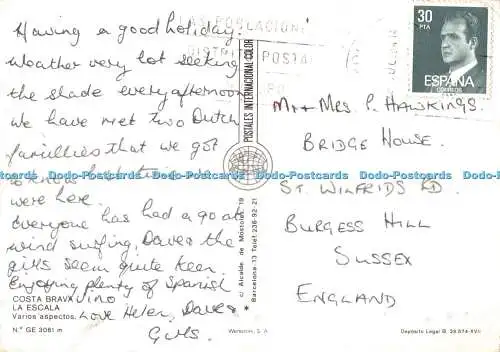 Having a good holiday.
Weather very hot seeking
the shade every afternoon
we have met two Dutch
famillies that we got
to know last time we
were here.
Everyone has had a go at
wind surfing, Daves the
girls seem quite keen.
Enjoying plenty of Spanish
vino
Love Helen, Dave &
Girls.
COSTA BRAVA
LA ESCALA
Varios aspectos.
N.º GE 3081 m
POSTALES INTERNACIONAL-COLOR
c/ Alcalde de Móstoles, 19
Barcelona-13 Telef. 236-92-21
Warocolor, S. A.
LAS POBLACIONE
DISTRI
POSTAL
30
PTA
ESPAÑA
CORREOS
Mr + Mrs P. Hawkings.
Bridge House.
St. Wilfrids Rd
Burgess Hill
Sussex
England
Depósito Legal B. 29.874-XVII
Dodo-Postcards